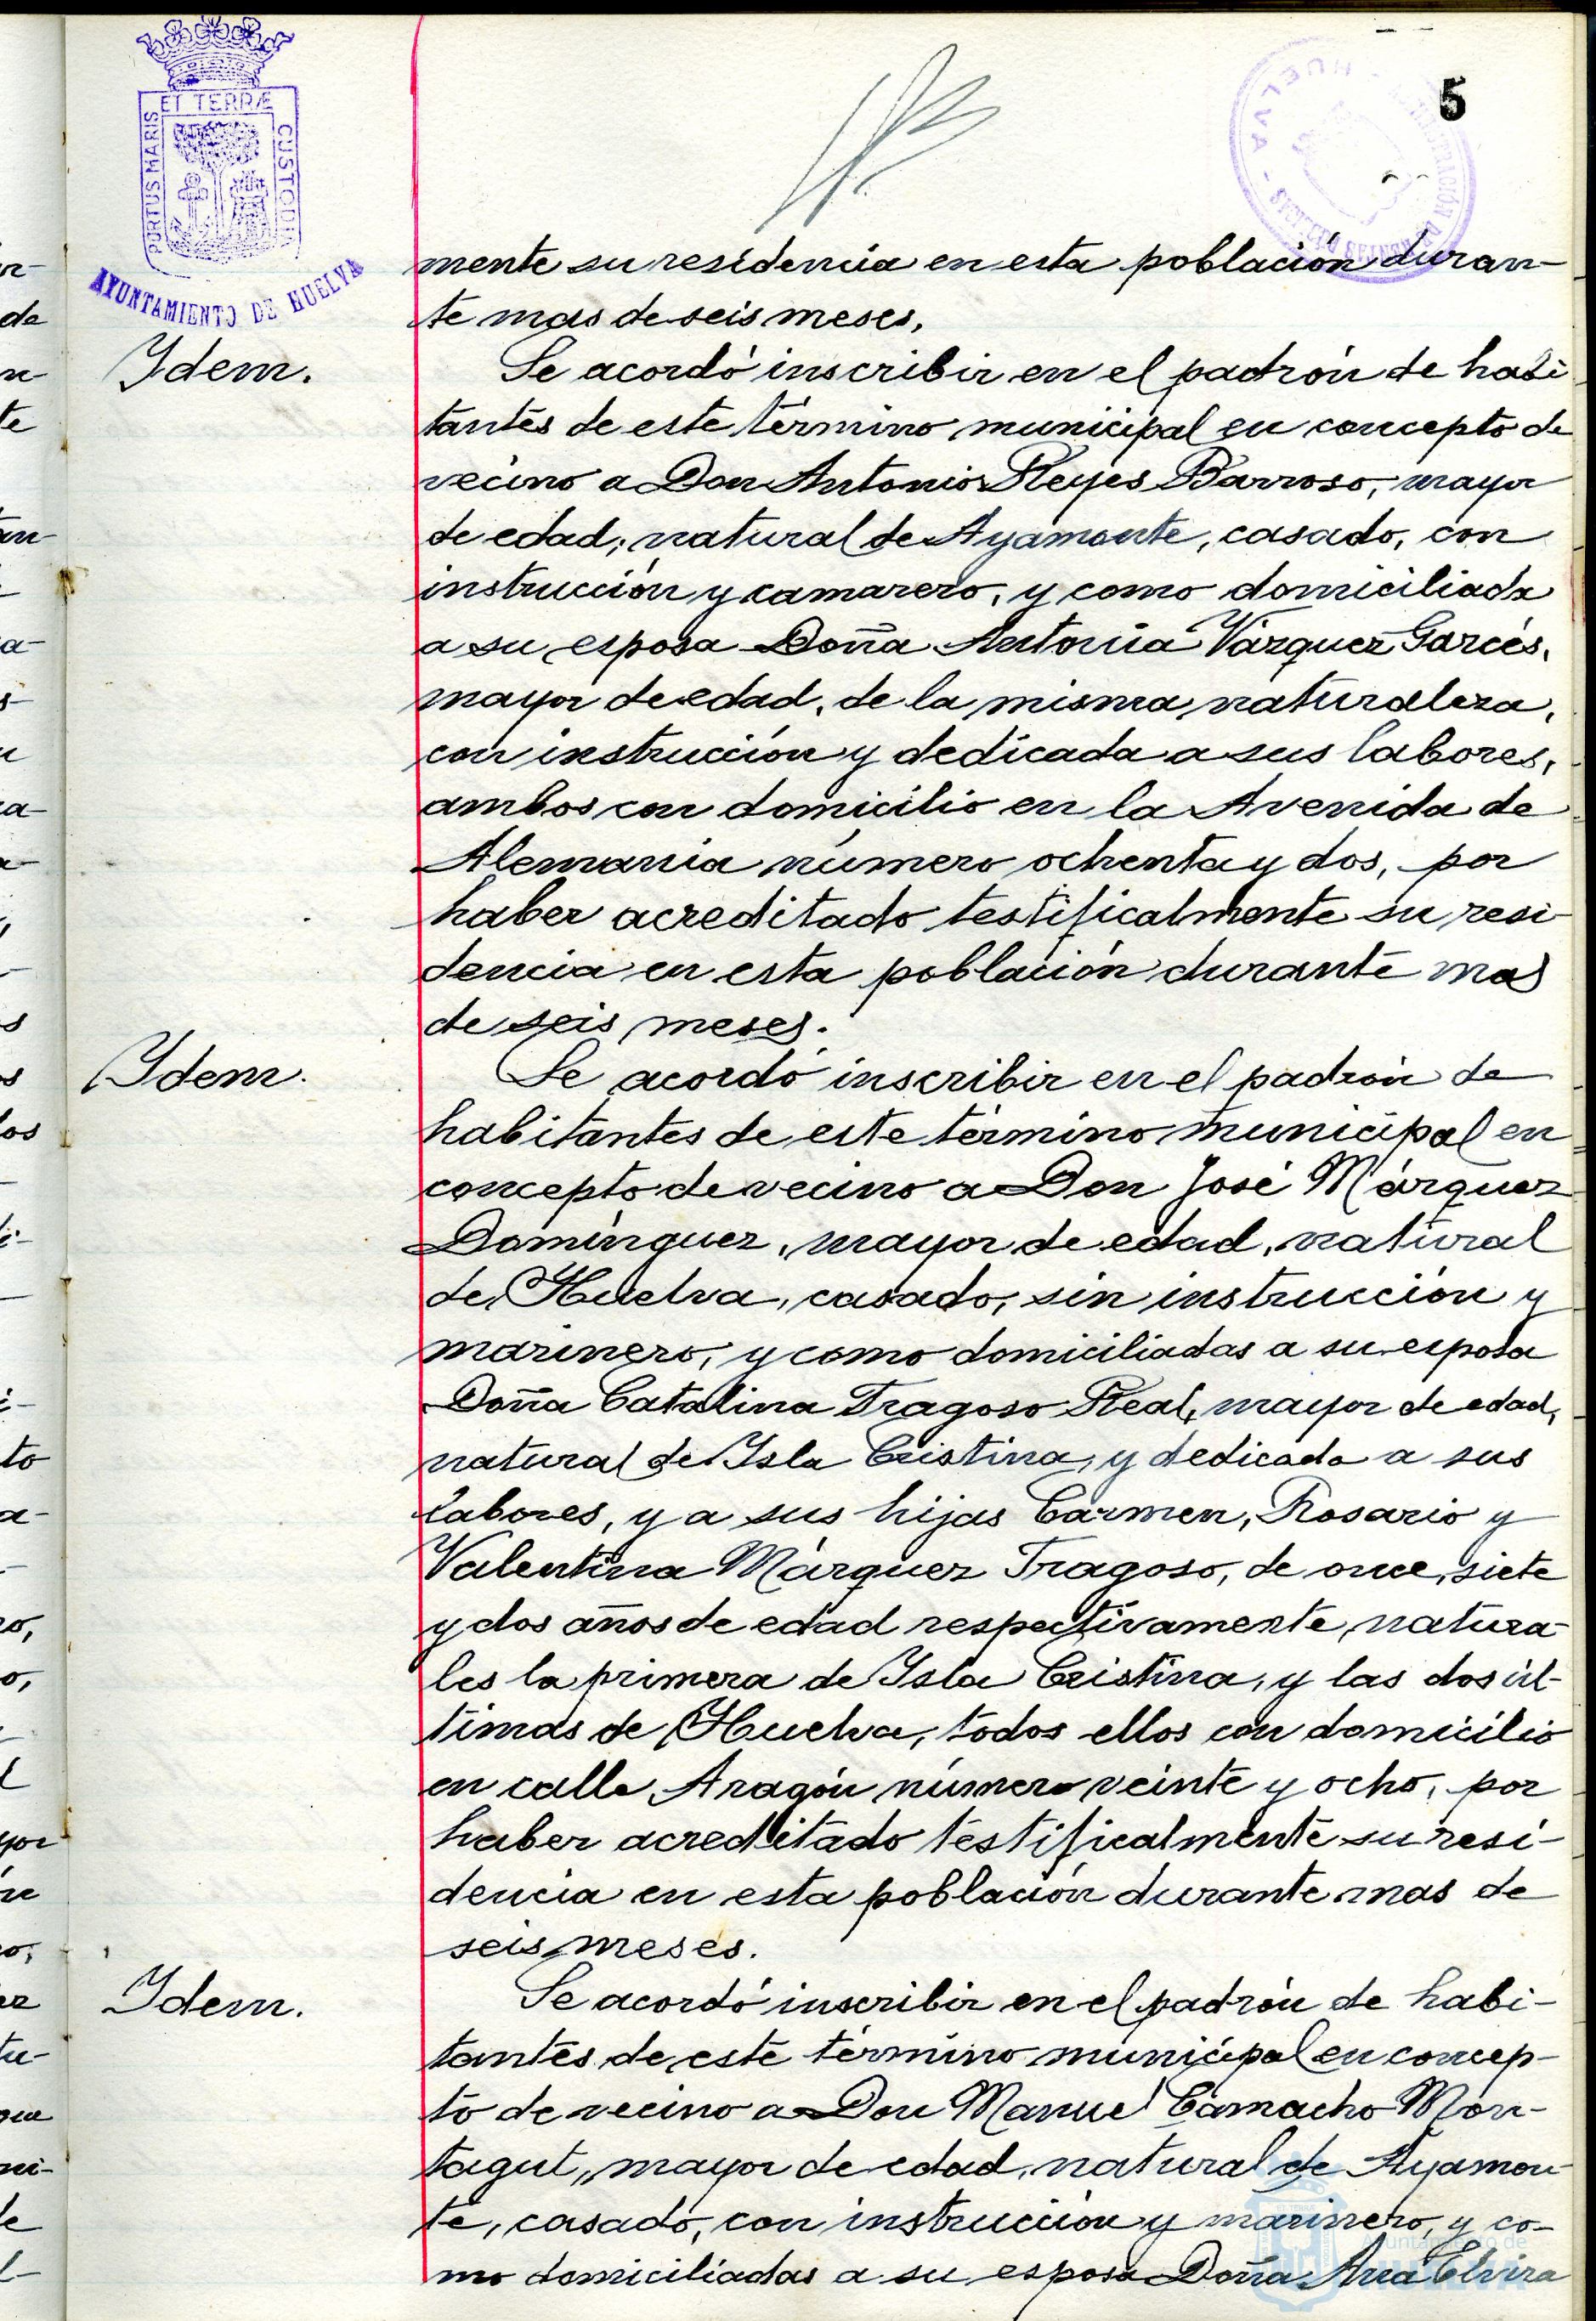 5
ET TERRÆ
PORTUS MARIS
CUSTODIA
AYUNTAMIENTO DE HUELVA
mente su residencia en esta población duran-
te mas de seis meses.
Idem.
Se acordó inscribir en el padrón de habi
tantes de este término municipal en concepto de
vecino a Don Antonio Reyes Barroso, mayor
de edad, natural de Ayamonte, casado, con
instrucción y camarero, y como domiciliada
a su esposa Doña Antonia Vázquez Garcés,
mayor de edad, de la misma naturaleza,
con instrucción y dedicada a sus labores,
ambos con domicilio en la Avenida de
Alemania número ochenta y dos, por
haber acreditado testificalmente su resi
dencia en esta población durante mas
de seis meses.
Idem.
Se acordó inscribir en el padrón de
habitantes de este término municipal en
concepto de vecino a Don José Márquez
Domínguez, mayor de edad, natural
de Huelva, casado, sin instrucción y
marinero, y como domiciliadas a su esposa
Doña Catalina Fragoso Real, mayor de edad,
natural de Isla Cristina, y dedicada a sus
labores, y a sus hijas Carmen, Rosario y
Valentina Márquez Fragoso, de once, siete
y dos años de edad respectivamente, natura-
les la primera de Isla Cristina, y las dos úl-
timas de Huelva, todos ellos con domicilio
en calle Aragón número veinte y ocho, por
haber acreditado testificalmente su resi-
dencia en esta población durante mas de
seis meses.
Idem.
Se acordó inscribir en el padrón de habi-
tantes de este término municipal en concep-
to de vecino a Don Manuel Camacho Mon-
tagut, mayor de edad, natural de Ayamon-
te, casado, con instrucción y marinero, y co-
mo domiciliadas a su esposa Doña Ana Elvira